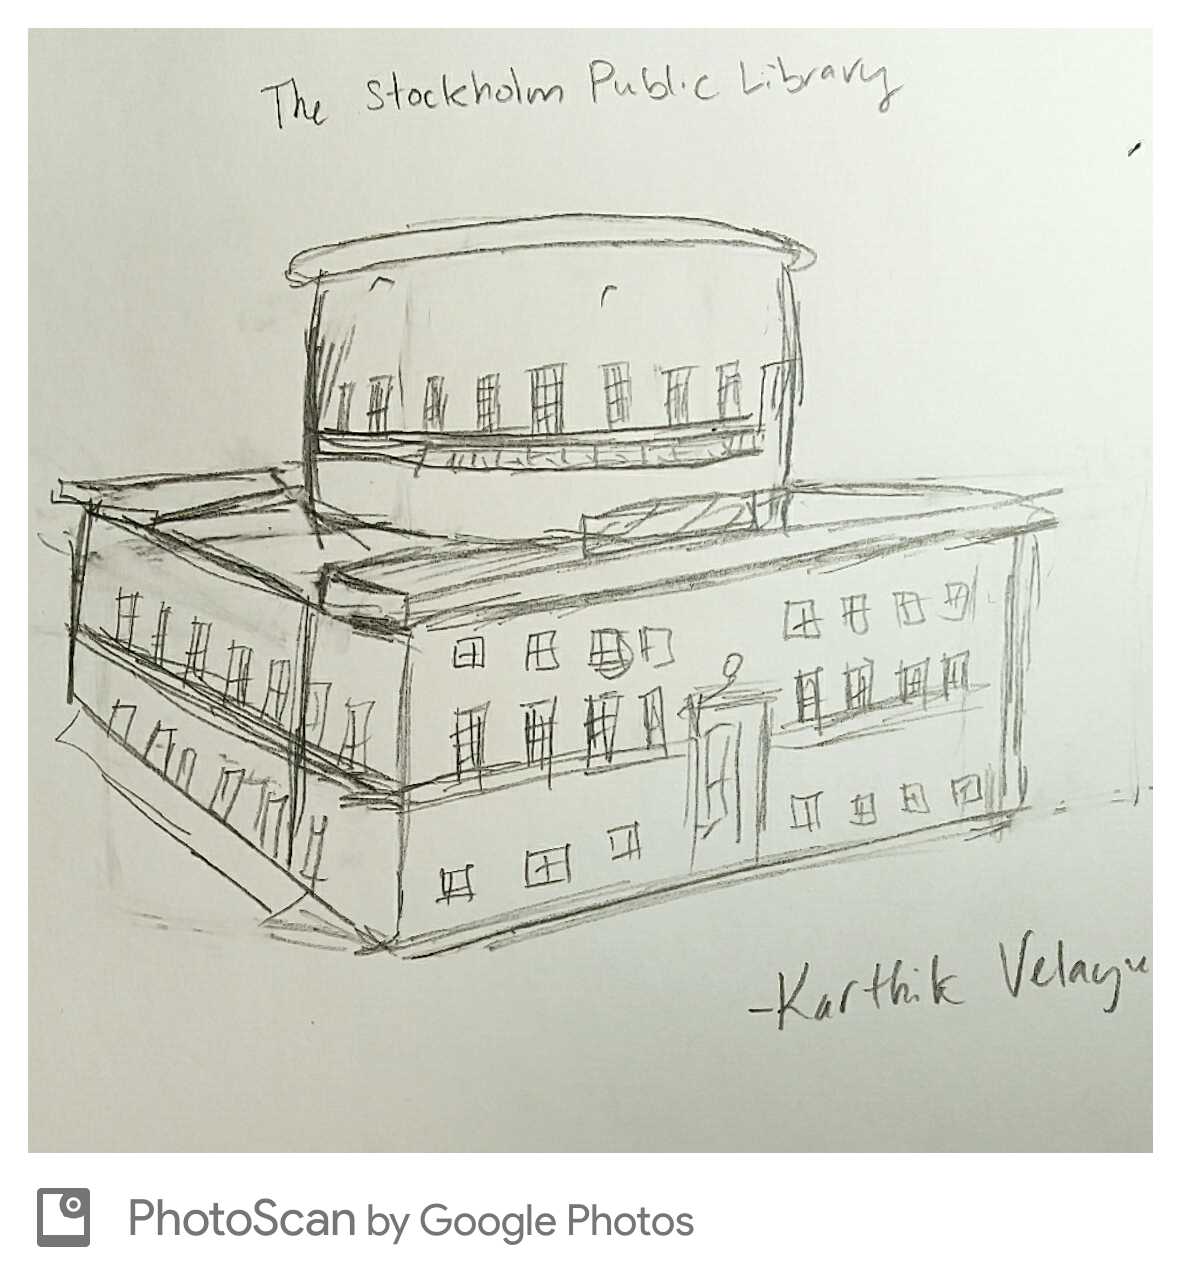 The Stockholm Public Library
-Karthik
PhotoScan by Google Photos